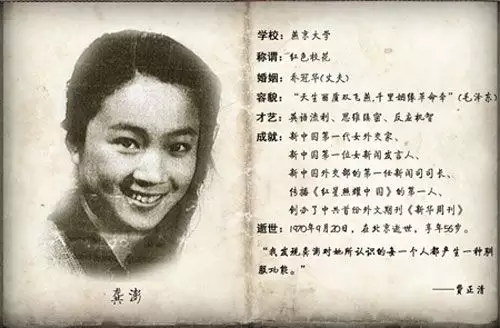 学校：燕京大学
称谓：红色校花
婚姻：乔冠华(丈夫)
容貌："天生丽质双飞燕,千里姻缘革命牵"(毛泽东)
才艺：英语流利、思维缜密、反应机智
成就：新中国第一代女外交家、
新中国第一位女新闻发言人、
新中国外交部的第一任新闻司司长、
传播《红星照耀中国》的第一人、
创办了中共首份外文期刊《新华周刊》
逝世：1970年9月20日，在北京逝世，享年56岁。
"我发现龚澎对她所认识的每一个人都产生一种驯
服功能。"
——费正清
龚澎